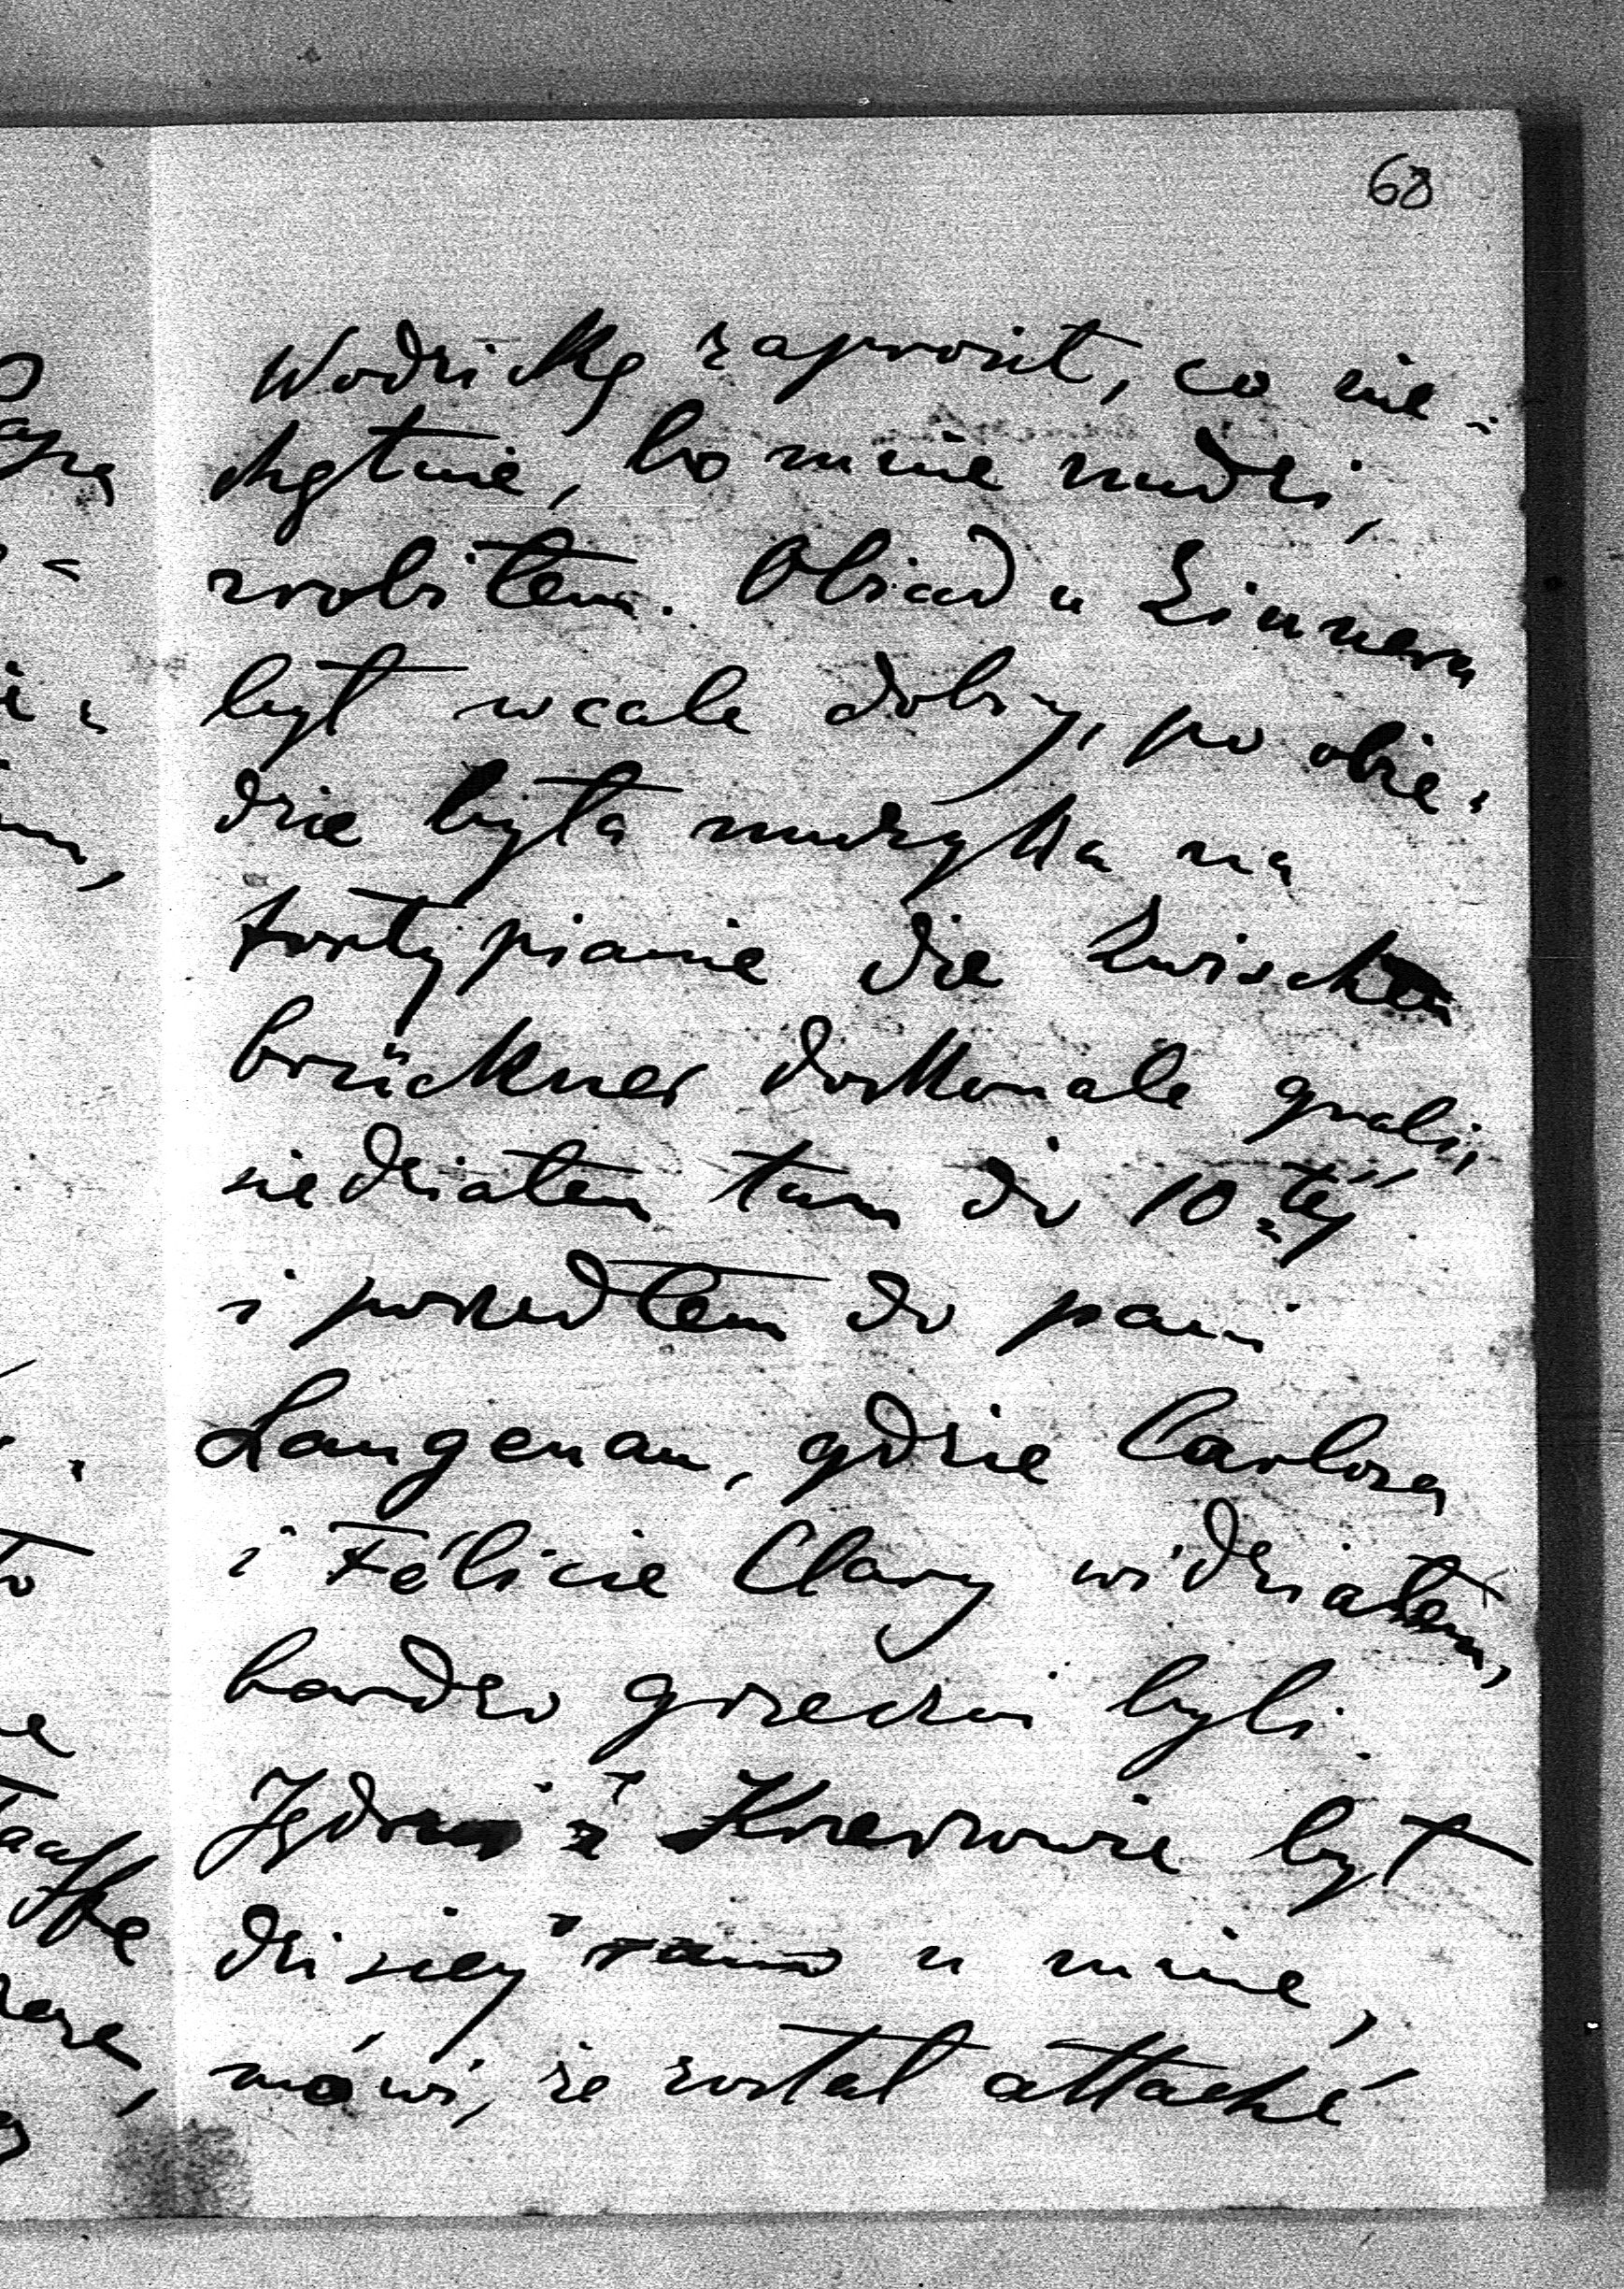 68
Wodzicką zaprosił, co nie-
chętnie, bo mnie nudzi,
zrobiłem. Obiad u Zinnera
był wcale dobry, po obie-
dzie była muzyka na
fortypianie die Zwischen
brückner doskonale grali,
siedziałem tam do 10-téj
i poszedłem do pani
Langenau, gdzie Carlosa
i Félicie Clary widziałem,
bardzo grzeczni byli.
z Krzeszowic był
dzisiey rano u mnie,
mówi, że został attaché